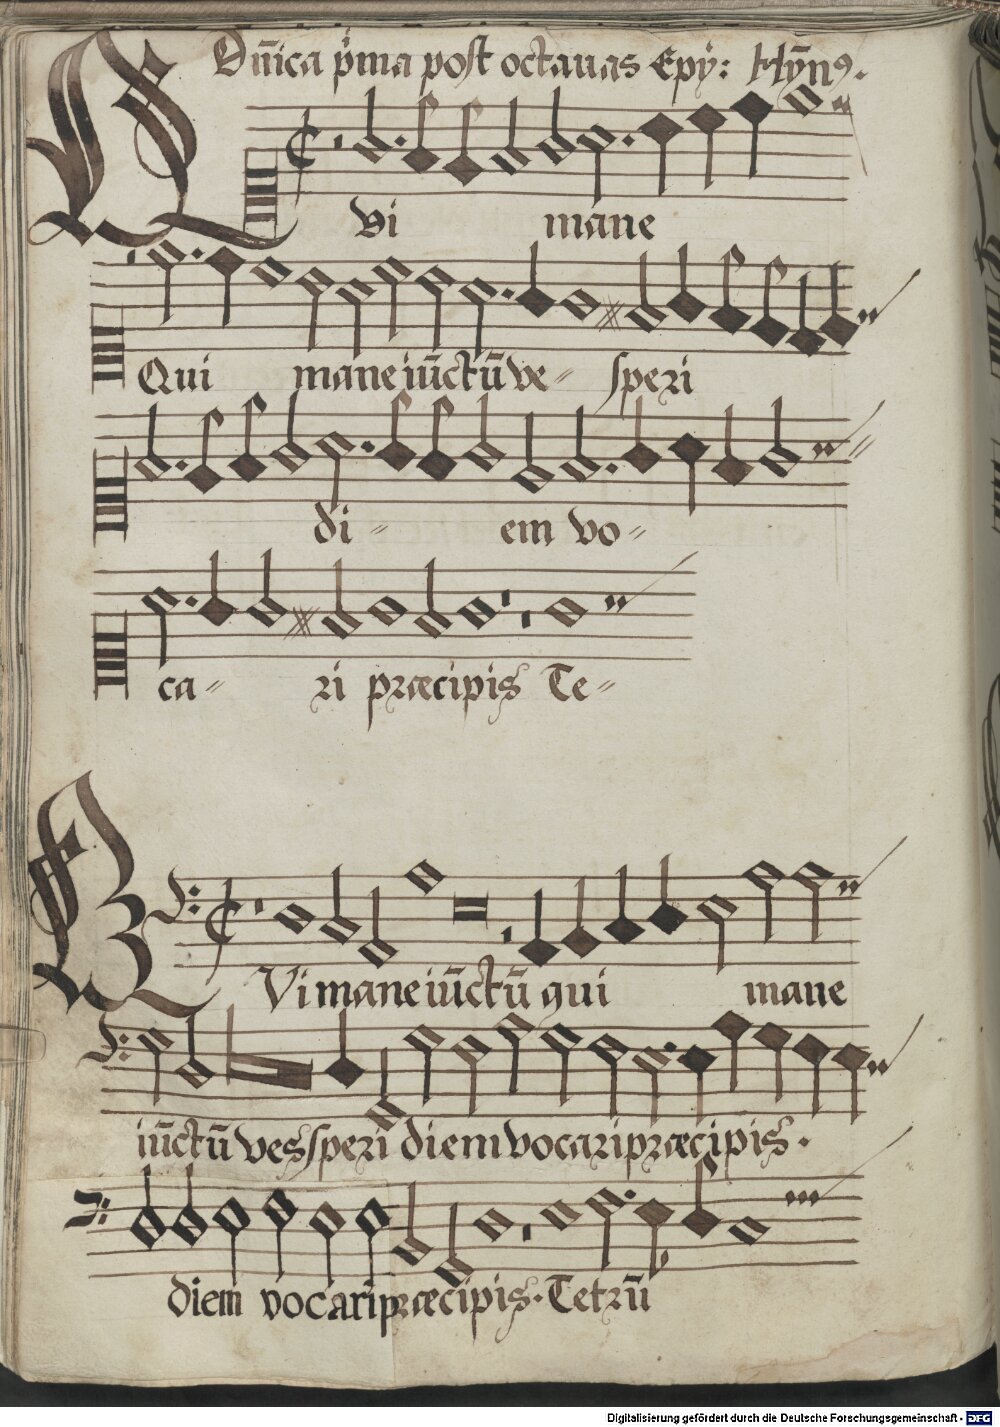 Dn̄ica p̄ma post octauas Epy: Hȳnꝰ.
QVi mane
Qui mane iūctū ve= speri
di= em vo=
ca= ri præcipis Te=
QVi mane iūctū qui mane
iūctū vesperi diem vocari præcipis.
diem vocari præcipis. Tetrū
Digitalisierung gefördert durch die Deutsche Forschungsgemeinschaft - DFG